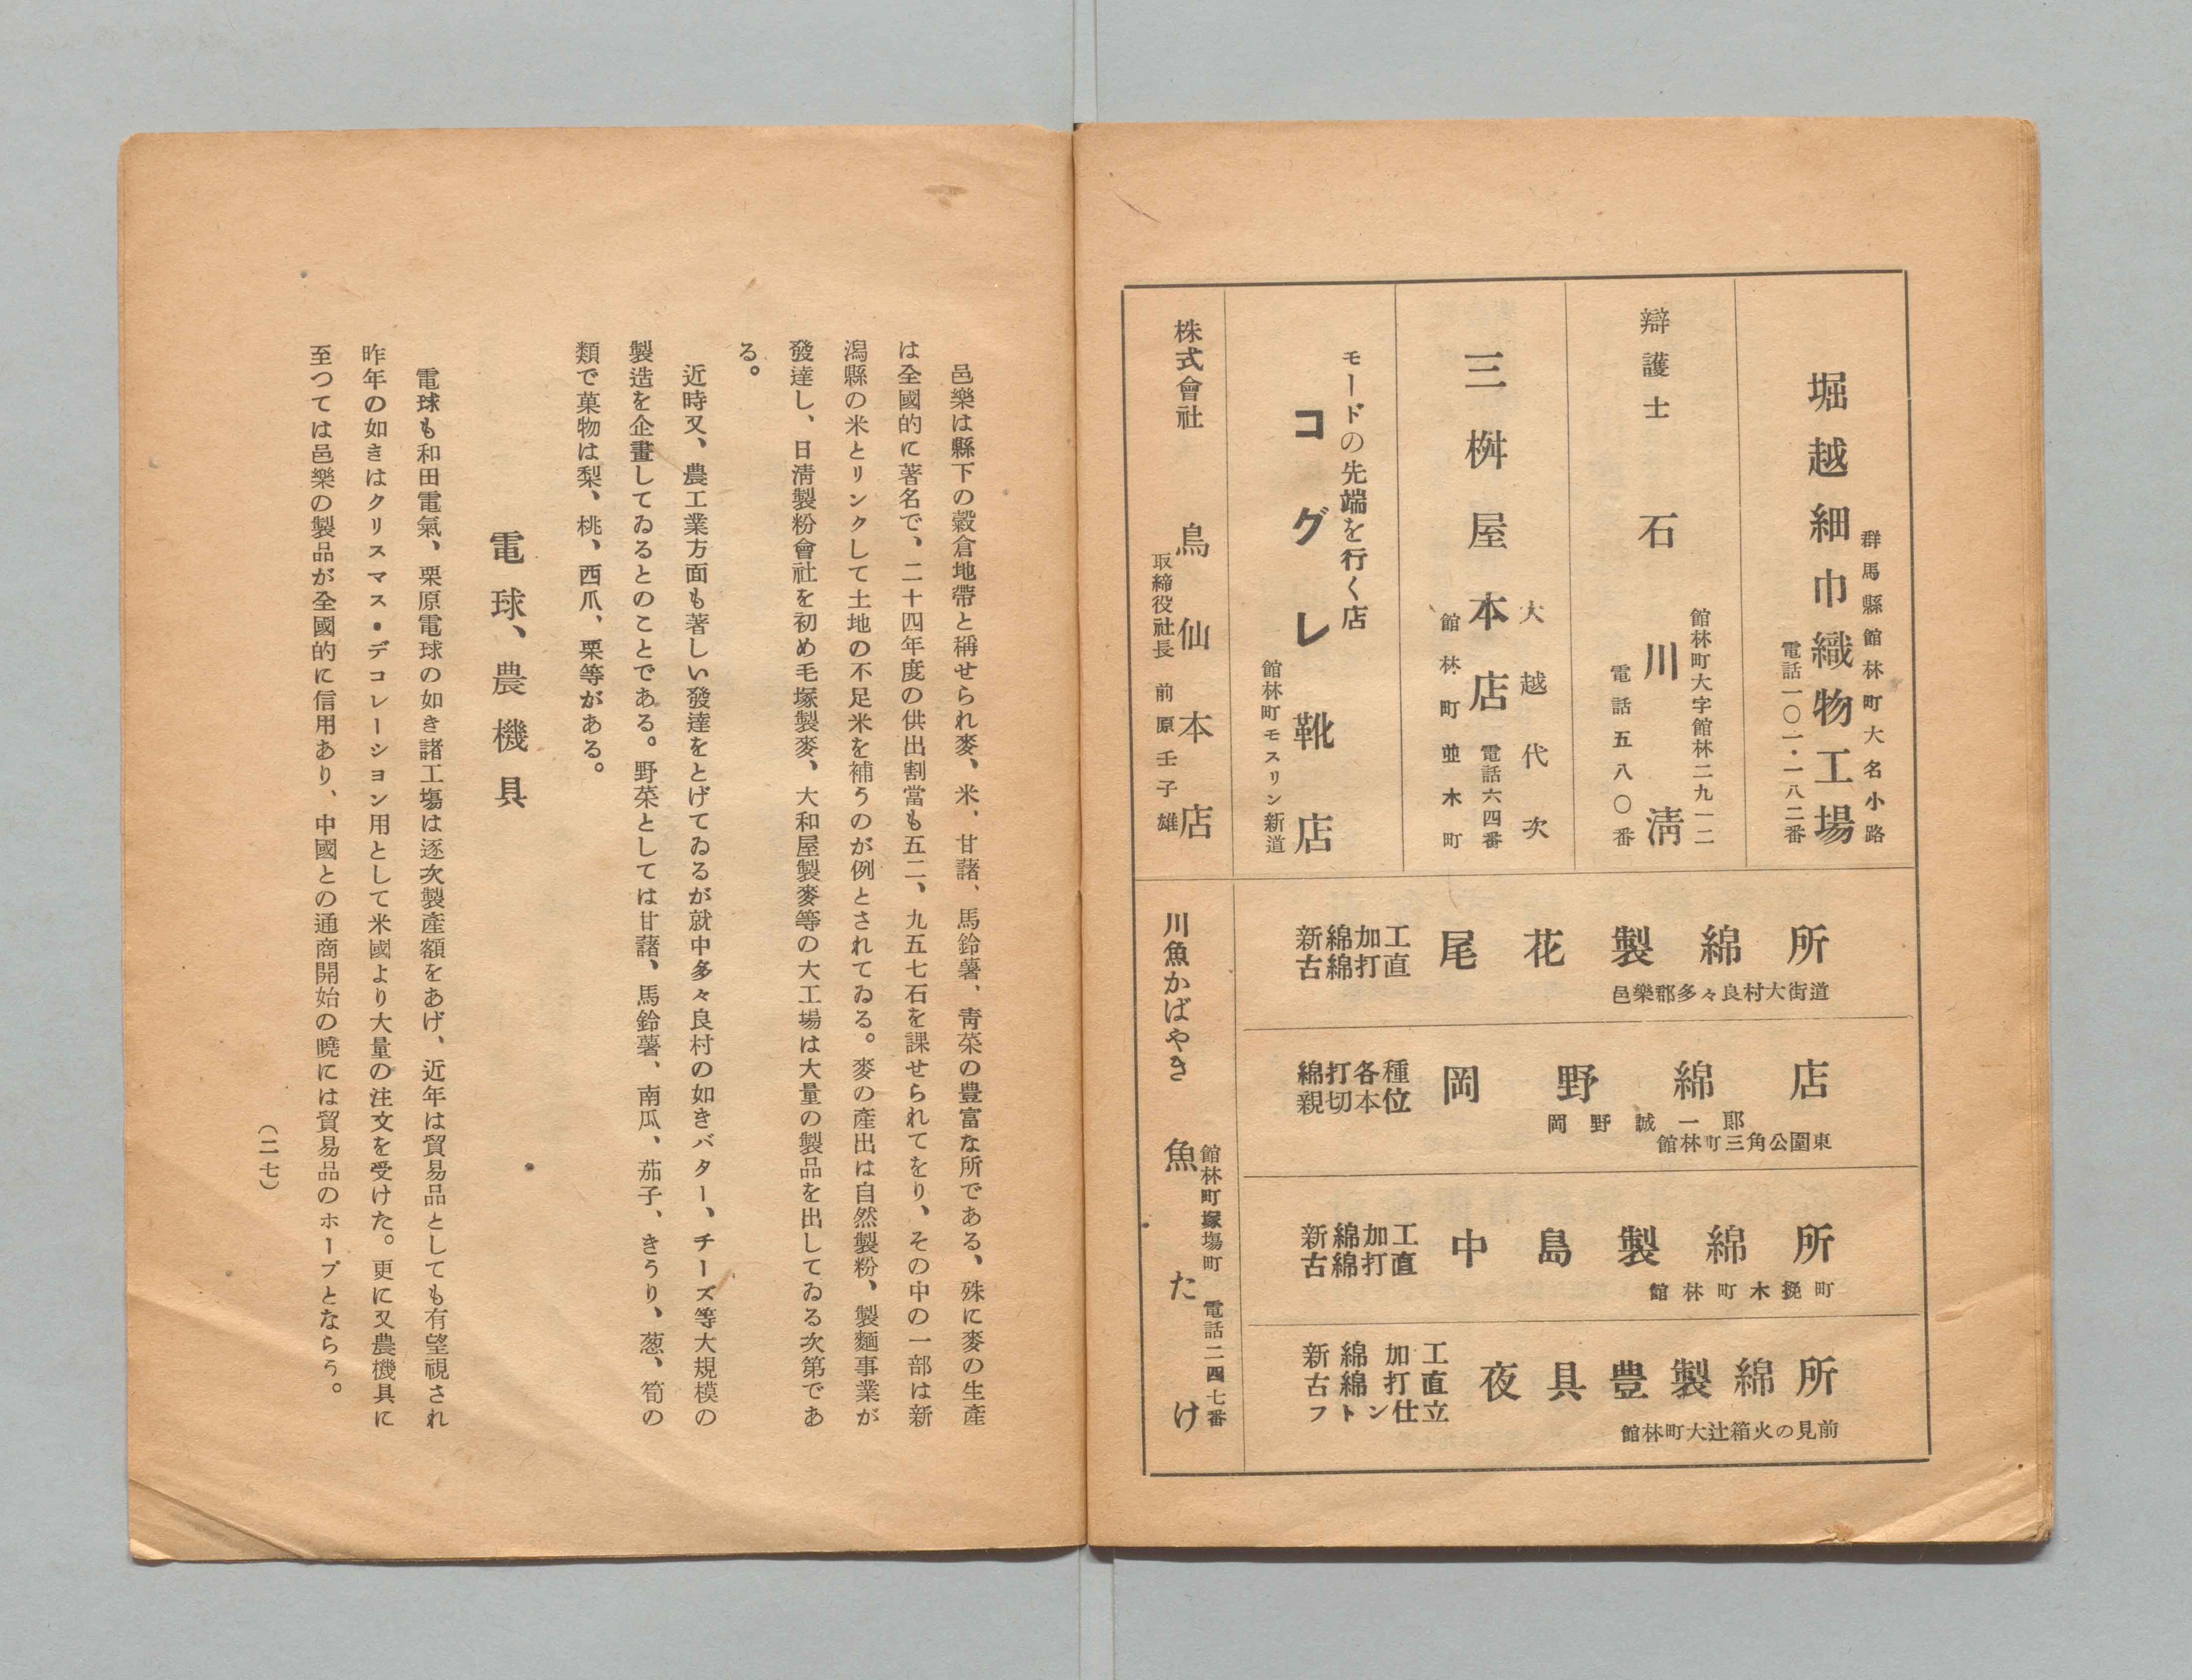 群馬縣館林町大名小路
堀越細巾織物工場
電話一〇一・一八二番
館林町大字館林二九一二
辯護士 石川淸
電話五八〇番
大越代次
三桝屋本店 電話六四番
館林町並木町
モードの先端を行く店
コグレ靴店
館林町モスリン新道
株式會社 鳥仙本店
取締役社長 前原壬子雄
新綿加工
古綿打直
尾花製綿所
邑樂郡多々良村大街道
綿打各種
親切本位
岡野綿店
岡野誠一郎
館林町三角公園東
新綿加工
古綿打直
中島製綿所
館林町木挽町
新綿加工
古綿打直
フトン仕立
夜具豊製綿所
館林町大辻箱火の見前
館林町塚塲町 電話二四七番
川魚かばやき 魚たけ
邑樂は縣下の穀倉地帶と稱せられ麥、米、甘藷、馬鈴薯、靑菜の豊富な所である、殊に麥の生產
は全國的に著名で、二十四年度の供出割當も五二、九五七石を課せられてをり、その中の一部は新
潟縣の米とリンクして土地の不足米を補うのが例とされてゐる。麥の產出は自然製粉、製麵事業が
發達し、日淸製粉會社を初め毛塚製麥、大和屋製麥等の大工場は大量の製品を出してゐる次第であ
る。
近時又、農工業方面も著しい發達をとげてゐるが就中多々良村の如きバター、チーズ等大規模の
製造を企畫してゐるとのことである。野菜としては甘藷、馬鈴薯、南瓜、茄子、きうり、葱、筍の
類で菓物は梨、桃、西爪、栗等がある。
電球、農機具
電球も和田電氣、栗原電球の如き諸工塲は逐次製產額をあげ、近年は貿易品としても有望視され
昨年の如きはクリスマス・デコレーション用として米國より大量の注文を受けた。更に又農機具に
至つては邑樂の製品が全國的に信用あり、中國との通商開始の曉には貿易品のホープとならう。
（二七）